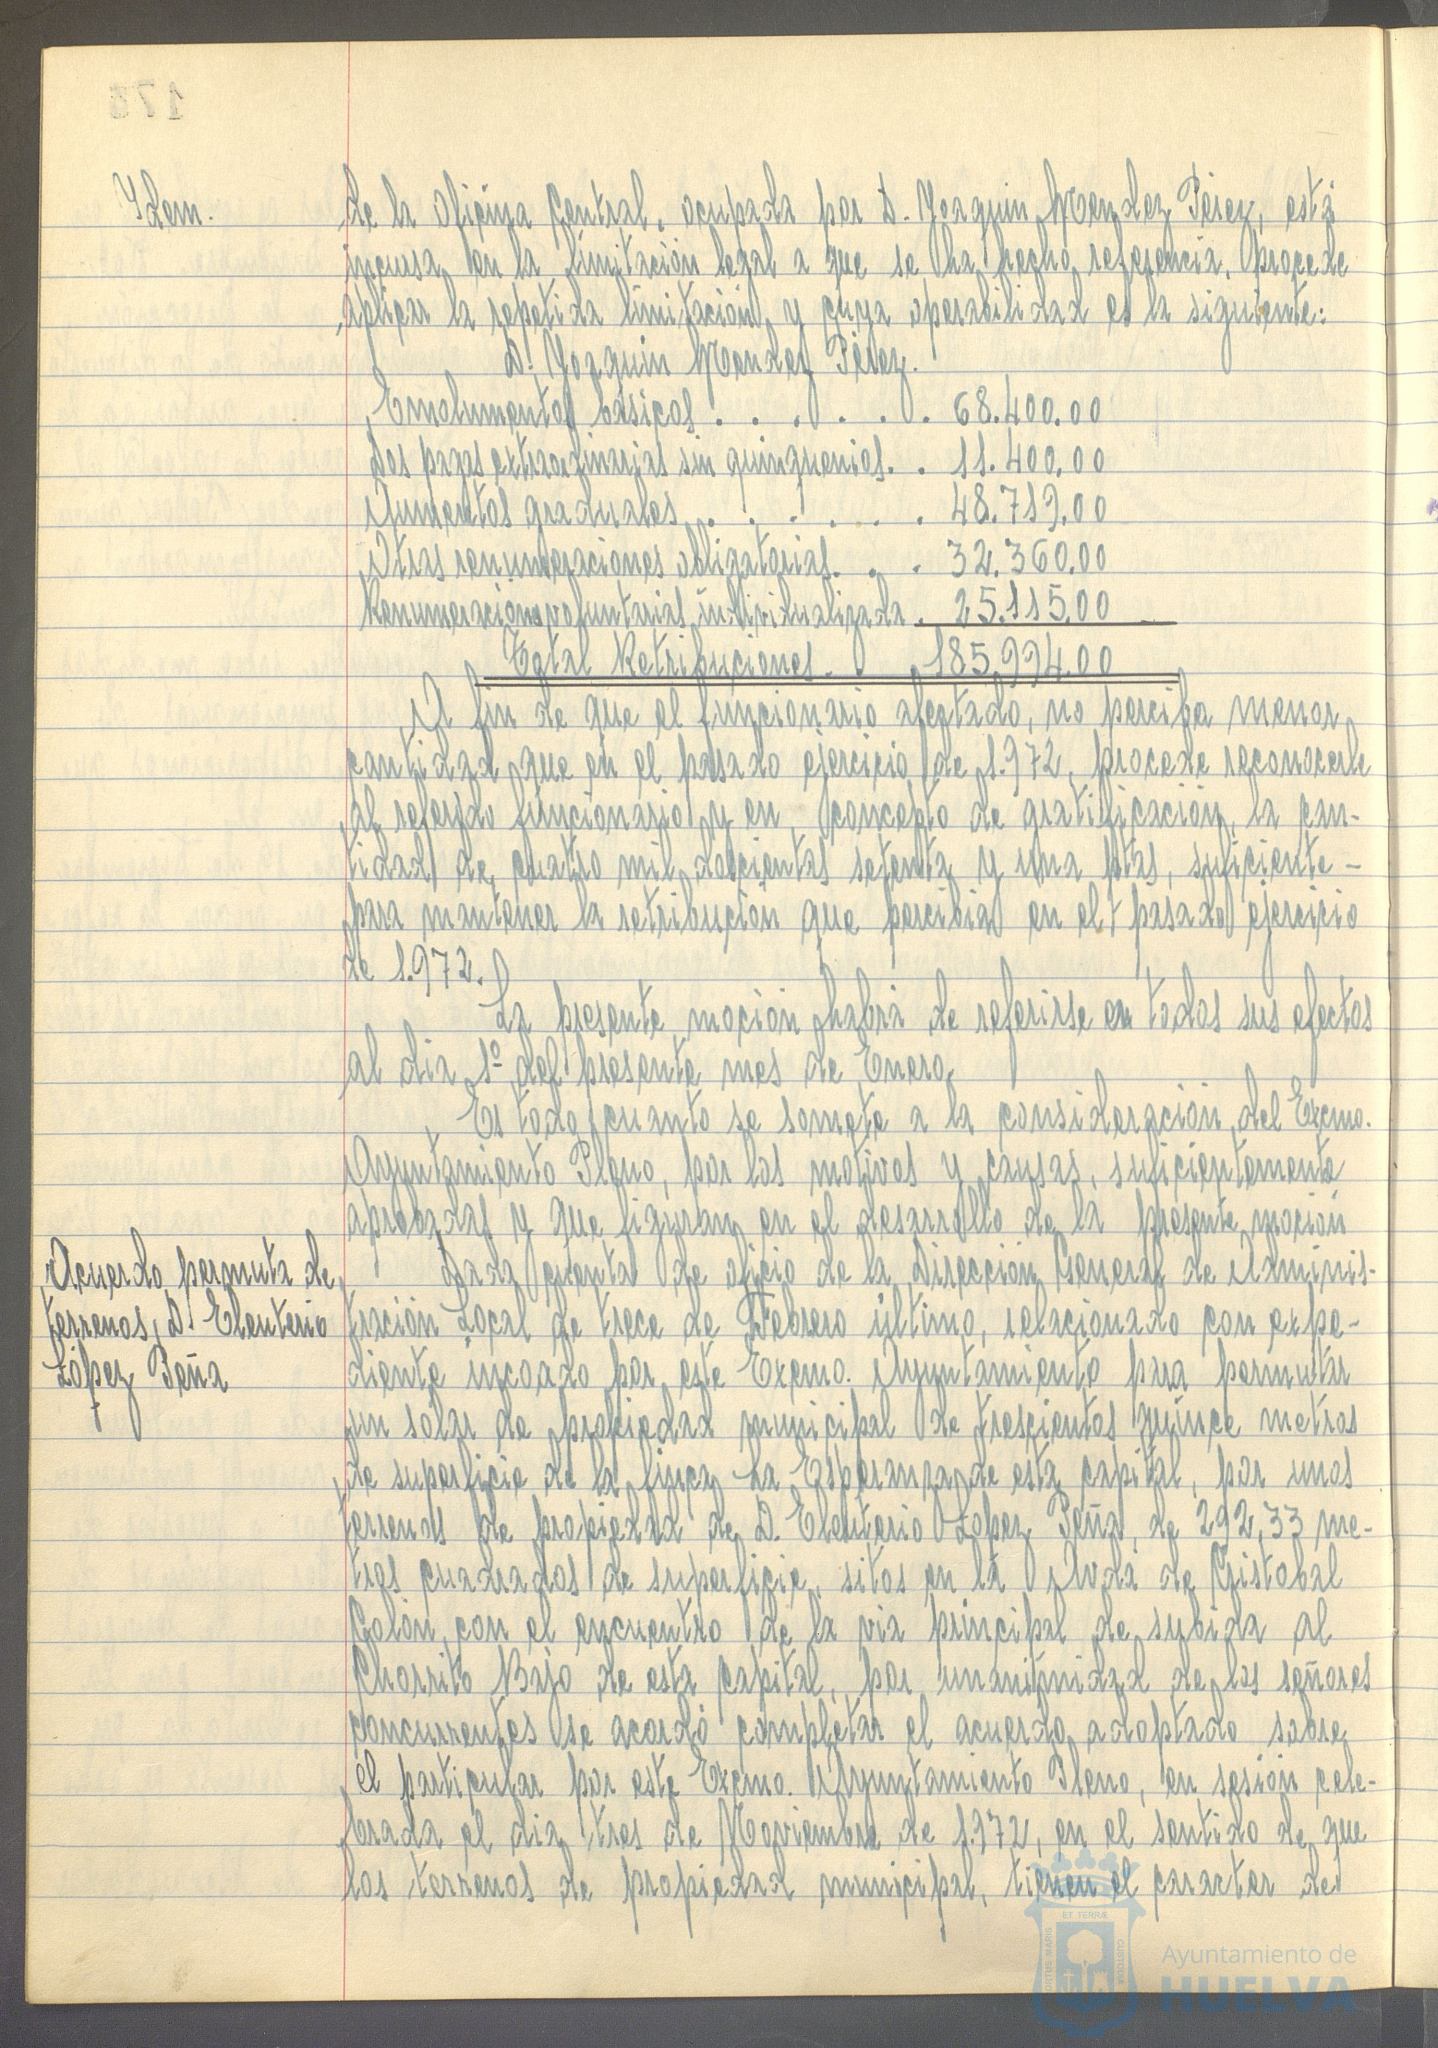 Idem.
de la oficina Central, ocupada por D. Joaquin Mendez Pérez, está
incursa en la limitación legal a que se ha hecho referencia, procede
aplicar la repetida limitación y cuya operabilidad es la siguiente:
D. Joaquin Mendez Pérez.
Emolumentos básicos . . . . . . 68.400.00
Dos pagas extraordinarias sin quinquenios. . 11.400.00
Aumentos graduales . . . . . . 48.719.00
Otras renumeraciones obligatorias. . . 32.360.00
Renumeraciones voluntarias individualizada . 25.115.00
Total Retribuciones. . 185.994.00
A fin de que el funcionario afectado, no perciba menor
cantidad que en el pasado ejercicio de 1.972, procede reconocerle
al referido funcionario y en concepto de gratificación, la can-
tidad de cuatro mil doscientas setenta y una ptas, suficiente -
para mantener la retribución que percibia en el pasado ejercicio
de 1.972.
La presente moción habrá de referirse en todos sus efectos
al dia 1º del presente mes de Enero.
Es todo cuanto se somete a la consideración del Excmo.
Ayuntamiento Pleno, por los motivos y causas, suficientemente
aprobadas y que figuran en el desarrollo de la presente moción
Acuerdo permuta de
terrenos, D. Eleuterio
López Peña
Dada cuenta de oficio de la Dirección General de Adminis-
tración Local de trece de Febrero último, relacionado con expe-
diente incoado por este Excmo. Ayuntamiento para permutar
un solar de propiedad municipal de trescientos quince metros
de superficie de la finca La Esperanza de esta capital, por unos
terrenos de propiedad de D. Eleuterio López Peña, de 292,33 me-
tros cuadrados de superficie, sitos en la Avda de Cristobal
Colón, con el encuentro de la via principal de subida al
Chorrito Bajo de esta capital, por unanimidad de los señores
concurrentes se acordó completar el acuerdo adoptado sobre
el particular por este Excmo. Ayuntamiento Pleno, en sesión cele-
brada el dia tres de Noviembre de 1.972, en el sentido de que
los terrenos de propiedad municipal, tienen el caracter de
Ayuntamiento de
HUELVA